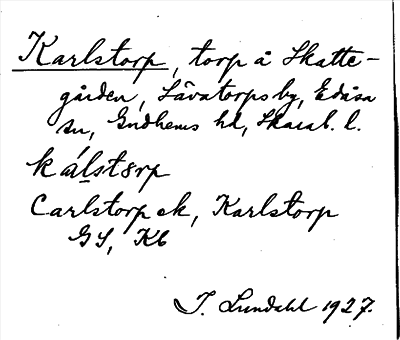 Karlstorp, torp å Skatte-
gården, Sävatorps by, Edåsa
sn, Gudhems hd, Skarab. l.
kálstørp
Carlstorp ek, Karlstorp
GS, Kb
I. Lundahl 1927.